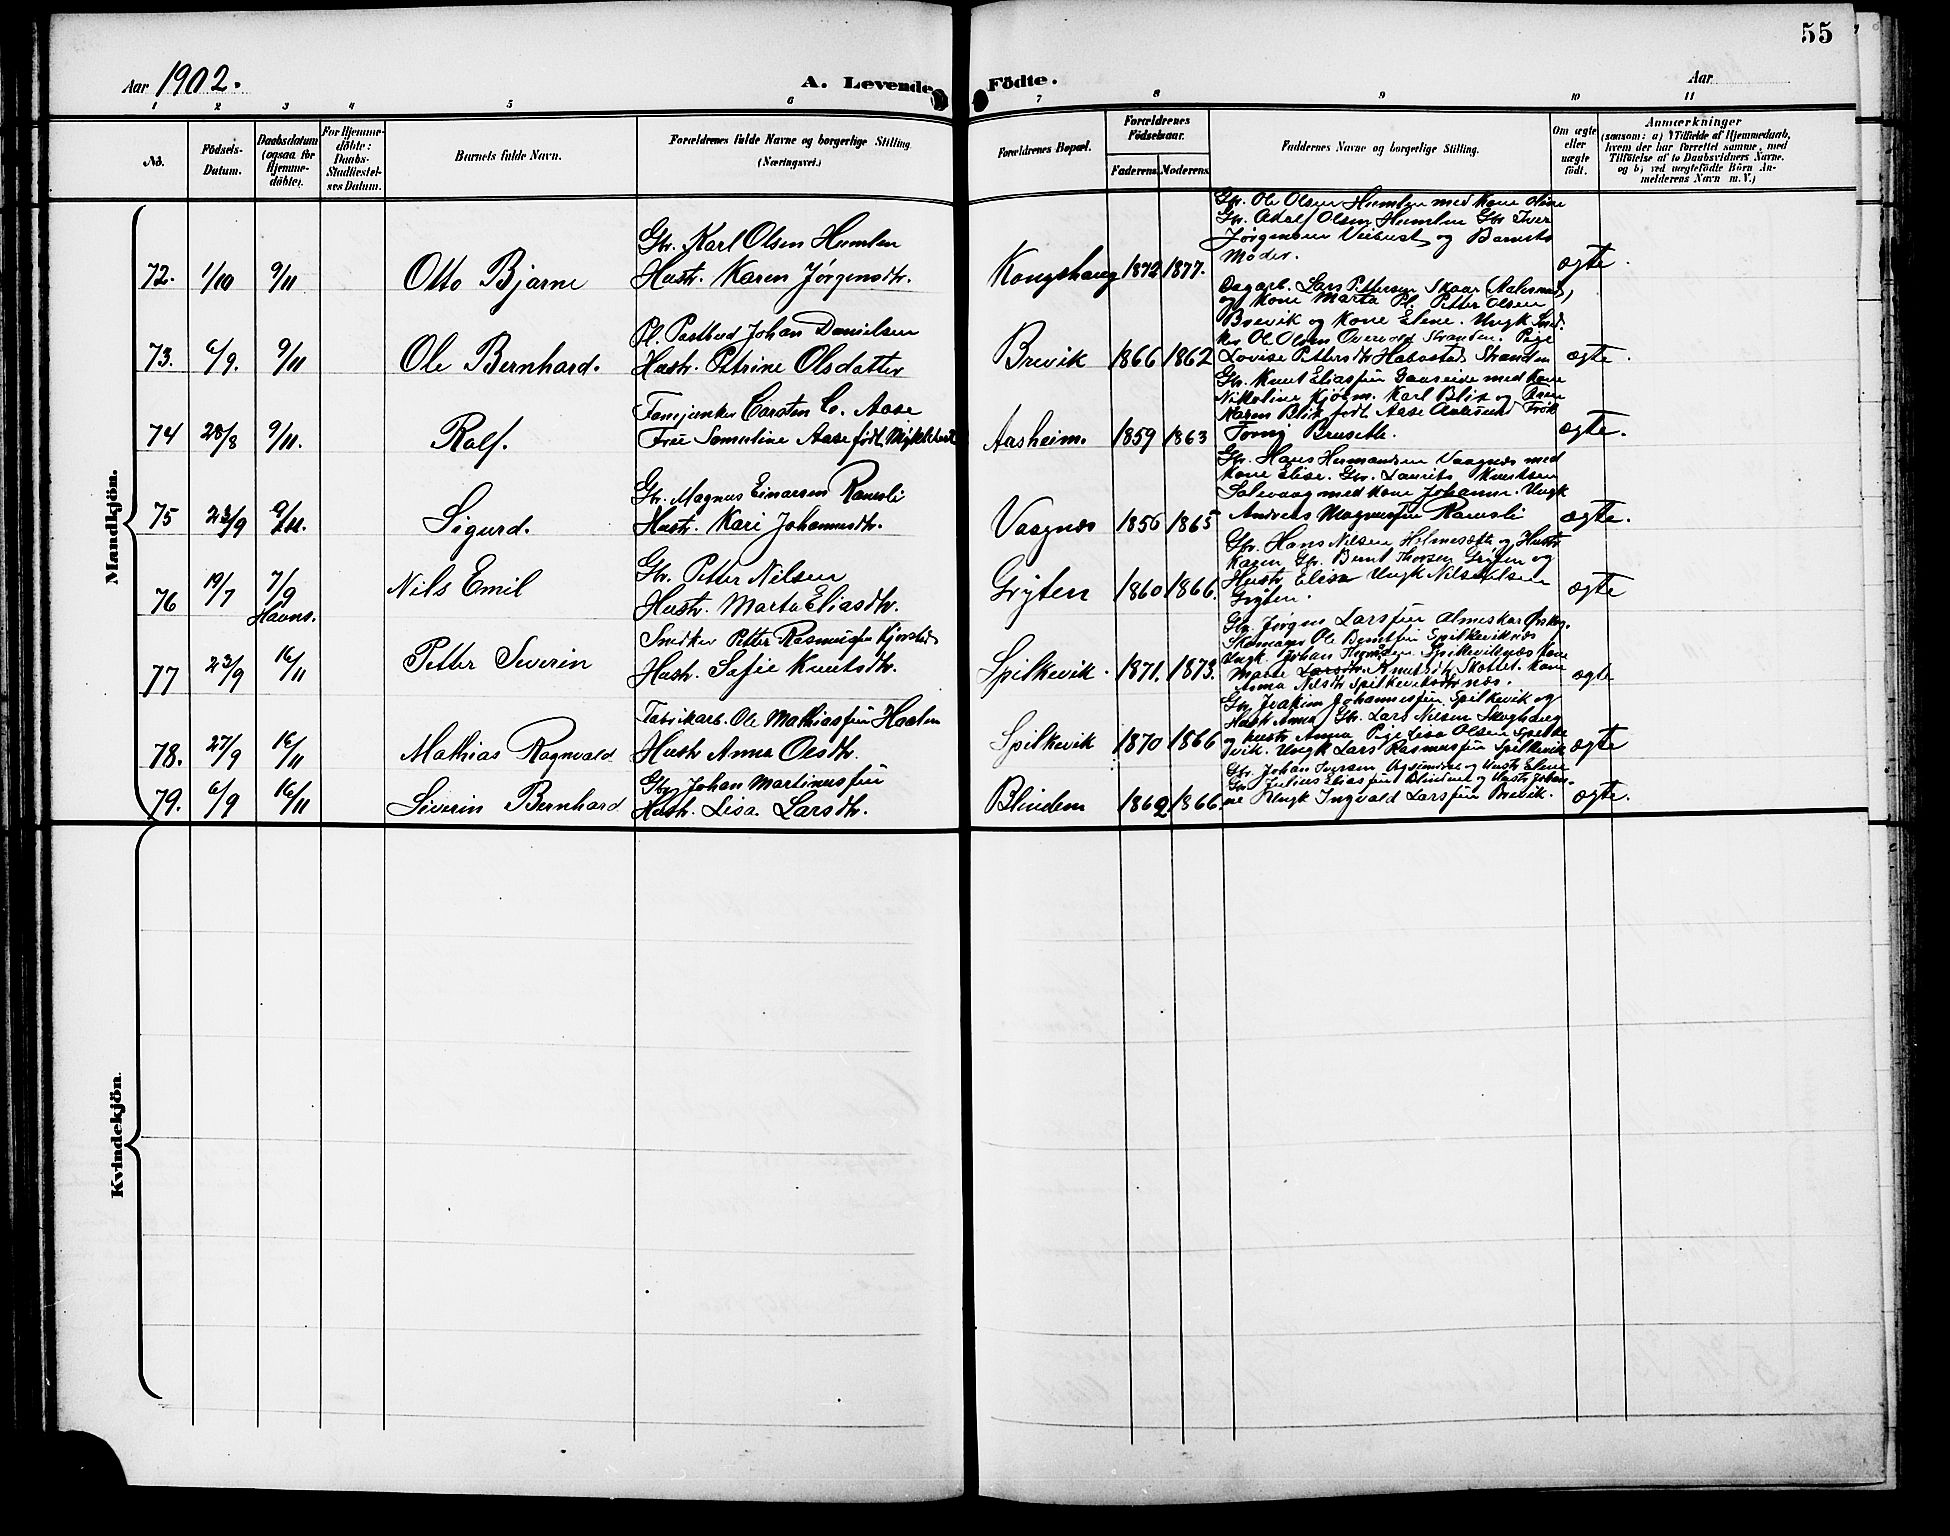 55
Aar 1902. A. Levende Födte. Aar
1 2 3 4 5 6 7 8 9 10 11
No.
Födsels-Datum.
Daabsdatum (ogsaa for Hjemme-döbte).
For Hjemme-döbte: Daabs-Stadfæstel-ses Datum.
Barnets fulde Navn.
Forældrenes fulde Navne og borgerlige Stilling
(Næringsvei.)
Forældrenes Bopæl.
Forældrenes Födselsaar.
Faderens. Moderens.
Faddernes Navne og borgerlige Stilling.
Om ægte eller uægte födt.
Anmærkninger
(saasom: a) i Tilfælde af Hjemmedaab,
hvem der har forrettet samme, med
Tilföielse af to Daabsvidners Navne.
og b) ved uægtefödte Börn An-
melderens Navn m. V.)
Mandkjön.
72. 1/10 9/11 Otto Bjarne
Gbr. Karl Olsen Humlen
Hustr. Karen Jørgensdtr.
Kongshaug 1872 1877.
Gbr. Ole Olsen Humlen med Kone Oline
Gbr. Adolf Olsen Humlen Gbr Iver
Jørgensen Veibust og Barnets
Moder.
ægte.
73. 6/9. 9/11 Ole Bernhard.
Pl. Postbud Johan Danielsen
Hustr. Petrine Olsdatter
Brevik 1866 1862
Dagarb. Lars Pettersen Skaar (Aalesund)
og Kone Marta Pl. Petter Olsen
Brevik og Kone Elene. Ungk Sned-
ker Ole Olsen Overvold Stranden. Pige
Lovise Pettersdtr Stranden
ægte.
74 28/8 9/11. Ralf.
Carsten C. Aase
Frue Samueline Aase født
Aasheim. 1859 1863
Gbr. Knut Eliassen Gaaseide med Kone
Nikoline Kjølm. Karl Blix og
Maren Blix født Aase Aalesund Frøk
Brusethe.
ægte.
75 23/9 9/11. Sigurd.
Gbr. Magnus Einarsen Ramsli
Hustr. Kari Johannesdtr.
Vaagnæs 1856 1865
Gbr. Hans Hermandsen Vaagnæs med
Kone Elise. Gbr. Laurits Knutsen
Solevaag med Kone Johanne. Ungk
Andreas Magnussen Ramsli
ægte.
76 19/7 7/9 Havns. Nils Emil
Gbr. Petter Nilsen
Hustr. Marta Eliasdtr.
Gryten 1860 1866.
Gbr. Hans Nilsen og Hustr
Karen Gbr. Bernt Thorsen Gryten og
Hustr Elisa Ungk Nils Nilsen
Gryten.
ægte
77 23/9 16/11 Petter Severin
Snedker Petter Rasmussen
Hustr. Sofie Knutsdtr.
Spilkevik. 1871. 1873.
Gbr. Jørgen Larssen
Skomager Ole Berntsen Spilkeviknæs
Ungk. Johan Spilkeviknæs Kone
Marte Larsdtr. Skottet. Kone
Anna Nilsdtr Spilkeviknæs.
ægte
78. 27/9 16/11 Mathias Ragnvald
Fabrikarb. Ole Mathiassen Haslen
Hustr Anna Olsdtr.
Spilkevik 1870 1866
Gbr Joakim Johannessen Spilkevik og
Hustr Anna Gbr. Lars Nilsen Skoghaug
og hustr Anna Pige Lisa Olsen Spilke-
vik. Ungk Lars Rasmussen Spilkevik
ægte
79. 6/9 16/11 Severin Bernhard
Gbr Johan Martinussen
Hustr. Lisa Larsdtr.
Blindem 1862 1866.
Gbr. Johan Iversen og Hustr Elene
Gbr Julius Eliassen Blindem og Hustr Johan-
ne Ungk Ingvald Larssen Brevik.
ægte.
Kvindekjön.